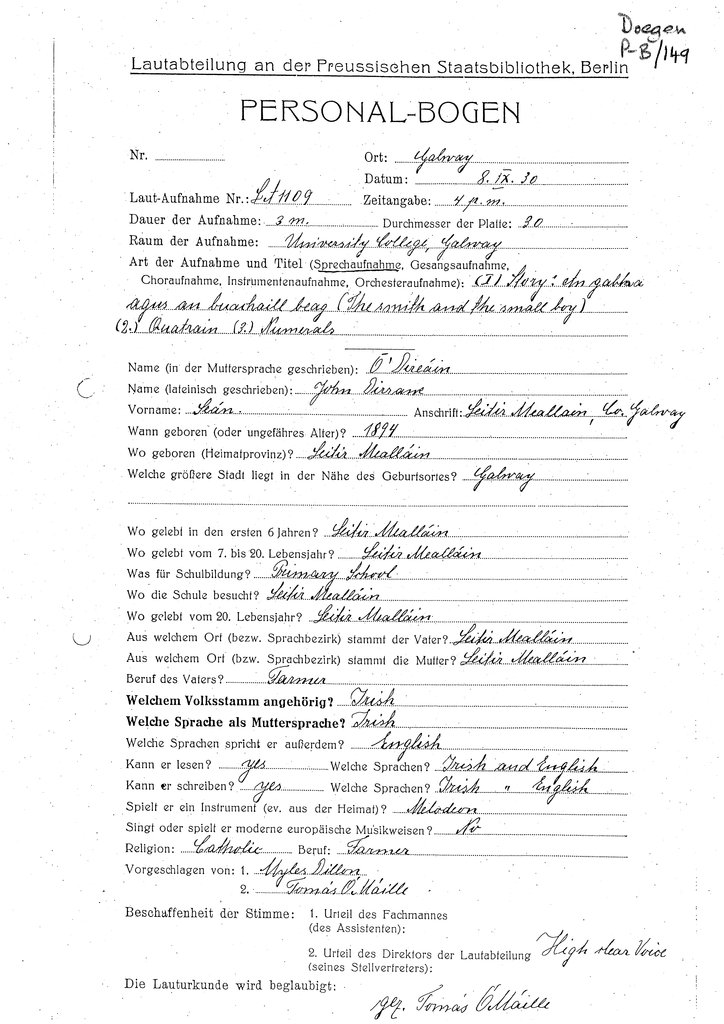 Doegen
P-B/149
Lautabteilung an der Preussischen Staatsbibliothek, Berlin
PERSONAL-BOGEN
Nr. Ort: Galway
Datum: 8. IX. 30
Laut-Aufnahme Nr.: LA 1109 Zeitangabe: 4 p.m.
Dauer der Aufnahme: 3 m. Durchmesser der Platte: 30
Raum der Aufnahme: University College, Galway
Art der Aufnahme und Titel (Sprechaufnahme, Gesangsaufnahme,
Choraufnahme, Instrumentenaufnahme, Orchesteraufnahme): (1) Story: An gabha
agus an buachaill beag (The smith and the small boy)
(2.) Quatrain (3.) Numerals
Name (in der Muttersprache geschrieben): Ó'Direáin
Name (lateinisch geschrieben): John Dirrane
Vorname: Seán. Anschrift: Leitir Meallain, Co. Galway
Wann geboren (oder ungefähres Alter)? 1894
Wo geboren (Heimatprovinz)? Leitir Mealláin
Welche größere Stadt liegt in der Nähe des Geburtsortes? Galway
Wo gelebt in den ersten 6 Jahren? Leitir Mealláin
Wo gelebt vom 7. bis 20. Lebensjahr? Leitir Mealláin
Was für Schulbildung? Primary School
Wo die Schule besucht? Leitir Mealláin
Wo gelebt vom 20. Lebensjahr? Leitir Mealláin
Aus welchem Ort (bezw. Sprachbezirk) stammt der Vater? Leitir Mealláin
Aus welchem Ort (bzw. Sprachbezirk) stammt die Mutter? Leitir Mealláin
Beruf des Vaters? Farmer
Welchem Volksstamm angehörig? Irish
Welche Sprache als Muttersprache? Irish
Welche Sprachen spricht er außerdem? English
Kann er lesen? yes Welche Sprachen? Irish and English
Kann er schreiben? yes Welche Sprachen? Irish " English
Spielt er ein Instrument (ev. aus der Heimat)? Melodeon
Singt oder spielt er moderne europäische Musikweisen? No
Religion: Catholic Beruf: Farmer
Vorgeschlagen von: 1. Myles Dillon
2. Tomás Ó Máille
Beschaffenheit der Stimme: 1. Urteil des Fachmannes
(des Assistenten):
2. Urteil des Direktors der Lautabteilung High clear Voice
(seines Stellvertreters):
Die Lauturkunde wird beglaubigt:
gez. Tomás Ó Máille